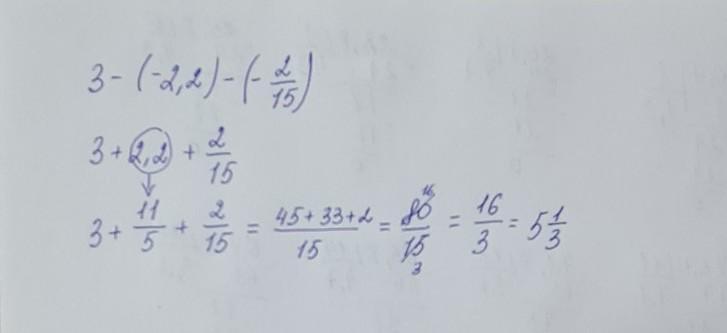 3 - (-2,2) - (-2/15)
3 + 2,2 + 2/15
3 + 11/5 + 2/15 = 45+33+2/15 = 80/15 16 3 = 16/3 = 5 1/3